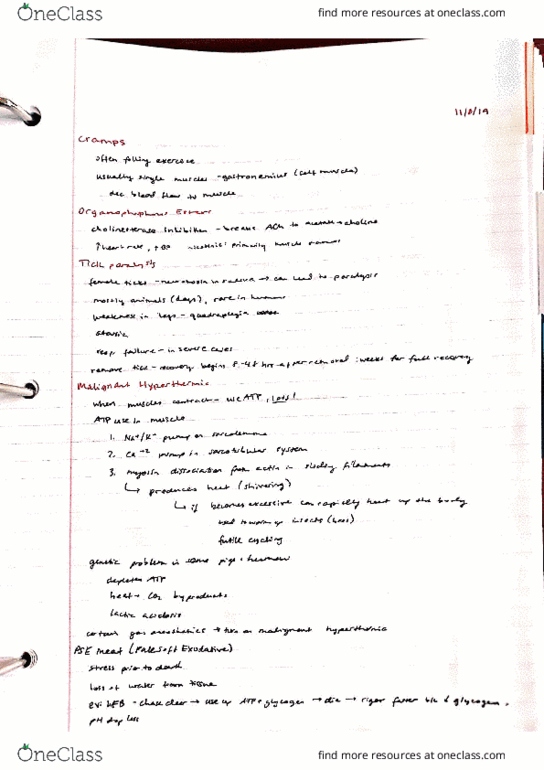 OneClass
find more resources at oneclass.com
11/8/19
Cramps
often folling exercise
usually single muscles - gastronemius (calf muscle)
dec. blood flow to muscle
Organophosphorus Esters
cholinesterase inhibition - breaks ACh to acetate + choline
↑ heart rate, nicotinic: primarily muscle
Tick paralysis
female ticks - neurotoxin in saliva → can lead to paralysis
mostly animals (dogs), rare in humans
weakness in legs - quadraplegia
ataxia
resp. failure - in severe cases
remove tick - recovery begins 8-48 hrs after removal : weeks for full recovery
Malignant Hyperthermic
when muscles contract - use ATP, lots!
ATP use in muscle
1. Na+/K+ pump on sarcolemma
2. Ca+2 pump in sarcotubular system
3. myosin dissociation from actin in sliding filaments
↳ produces heat (shivering)
↳ if becomes excessive can rapidly heat up the body
used to warm up
futile cycling
genetic problem in some pigs + humans
depletes ATP
heat + CO2 byproducts
lactic acidosis
certain gas anesthetics → turn on malignant hyperthermia
PSE meat (Pale Soft Exudative)
stress prior to death
loss of water from tissue
ex: WEB - chase deer → use up ATP + glycogen → die → rigor faster b/c ↓ glycogen,
pH drop less
OneClass
find more resources at oneclass.com